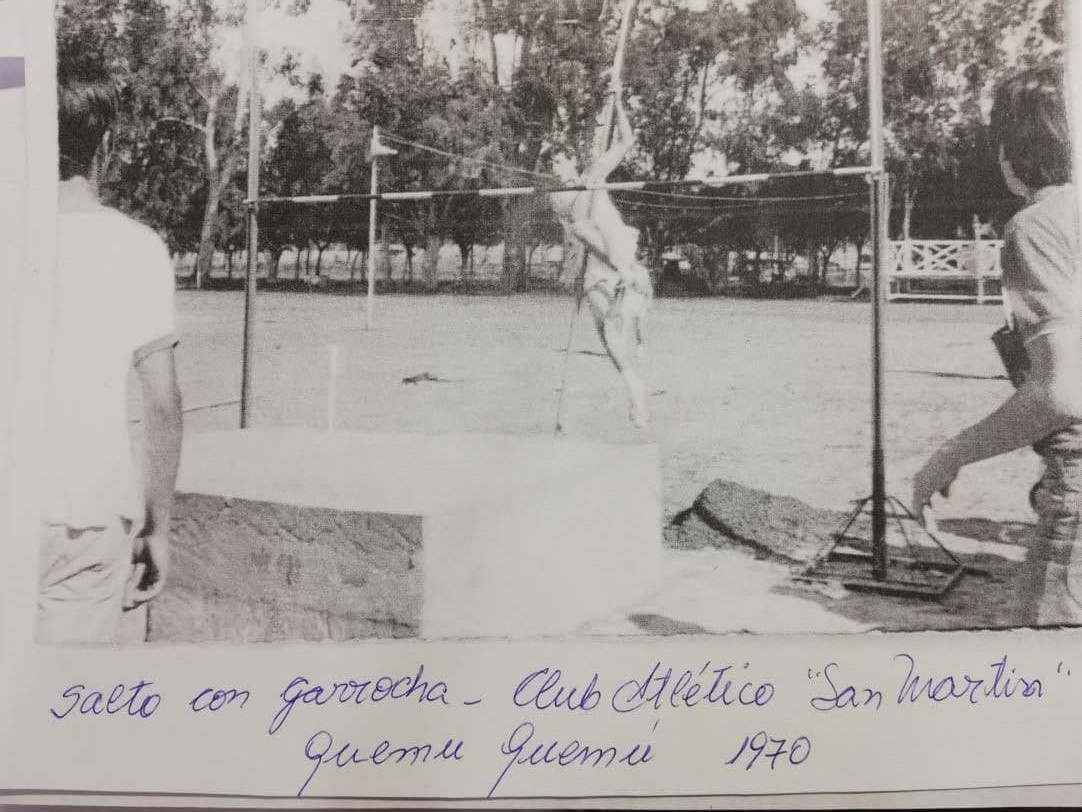 Salto con garrocha - Club Atlético "San Martín"
Quemu Quemú 1970